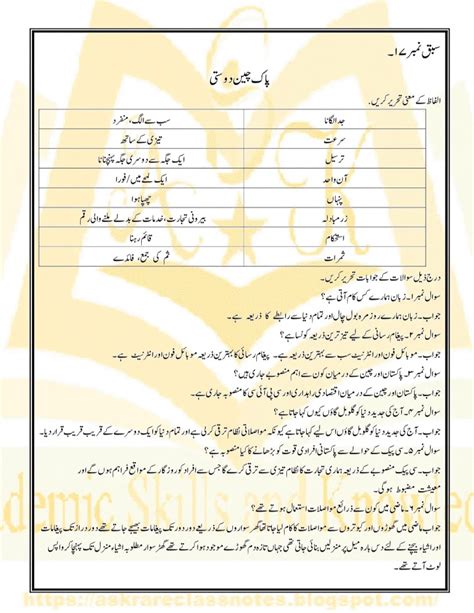 سبق نمبر ۱۷۔
پاک چین دوستی
الفاظ کے معنی تحریر کریں۔
جداگانا سب سے الگ، منفرد
سرعت تیزی کے ساتھ
ترسیل ایک جگہ سے دوسری جگہ پہنچانا
آن واحد ایک لمحے میں/فورا
پنہاں چھپا ہوا
زرمبادلہ بیرونی تجارت، خدمات کے بدلے ملنے والی رقم
استحکام قائم رہنا
ثمرات ثمر کی جمع، فائدے
درج ذیل سوالات کے جوابات تحریر کریں۔
سوال نمبر ۱۔ زبان ہمارے کس کام آتی ہے؟
جواب۔ زبان ہمارے روز مرہ بول چال اور تمام دنیا سے رابطے کا ذریعہ ہے۔
سوال نمبر ۲۔ پیغام رسانی کے لیے تیز ترین ذریعہ کونسا ہے؟
جواب۔ موبائل فون اور انٹرنیٹ سب سے بہترین ذریعہ ہے۔ پیغام رسانی کا بہترین ذریعہ موبائل فون اور انٹرنیٹ ہے۔
سوال نمبر ۳۔ پاکستان اور چین کے درمیان کون سے اہم منصوبے جاری ہیں؟
جواب۔ پاکستان اور چین کے درمیان اقتصادی راہداری اور سی پی آئی سی کا منصوبہ جاری ہے۔
سوال نمبر ۴۔ آج کی جدید دنیا کو گلوبل گاؤں کیوں کہا جاتا ہے؟
جواب۔ آج کی جدید دنیا کو گلوبل گاؤں اس لیے کہا جاتا ہے کیونکہ مواصلاتی نظام ترقی کر لی ہے اور تمام دنیا کو ایک دوسرے کے قریب قریب قرار دیا۔
سوال نمبر ۵۔ سی پیک کے حوالے سے پاکستانی افرادی قوت کو بڑھانے کا کیا منصوبہ ہے؟
جواب۔ سی پیک منصوبے کے ذریعہ ہماری تجارت کا نظام تیزی سے ترقی کرے گا جس سے افراد کو روزگار کے مواقع فراہم ہوں گے اور
معیشت مضبوط ہو گی۔
سوال نمبر ۶۔ ماضی میں کون سے ذرائع مواصلات استعمال ہوتے تھے؟
جواب۔ ماضی میں گھوڑوں اور کبوتروں سے مواصلات کا کام لیا جاتا تھا گھڑ سواروں کے ذریعے دور دور تک پیغامات بھیجے جاتے تھے دور دراز تک پیغامات
اور اشیاء بھیجنے کے لئے دس بارہ میل پر منزلیں بنائی جاتی تھی جہاں تازہ دم گھوڑے موجود ہوا کرتے تھے گھڑ سوار مطلوبہ اشیاء منزل تک پہنچا کر واپس
لوٹ آتے تھے۔
https://askrareclassnotes.blogspot.com/